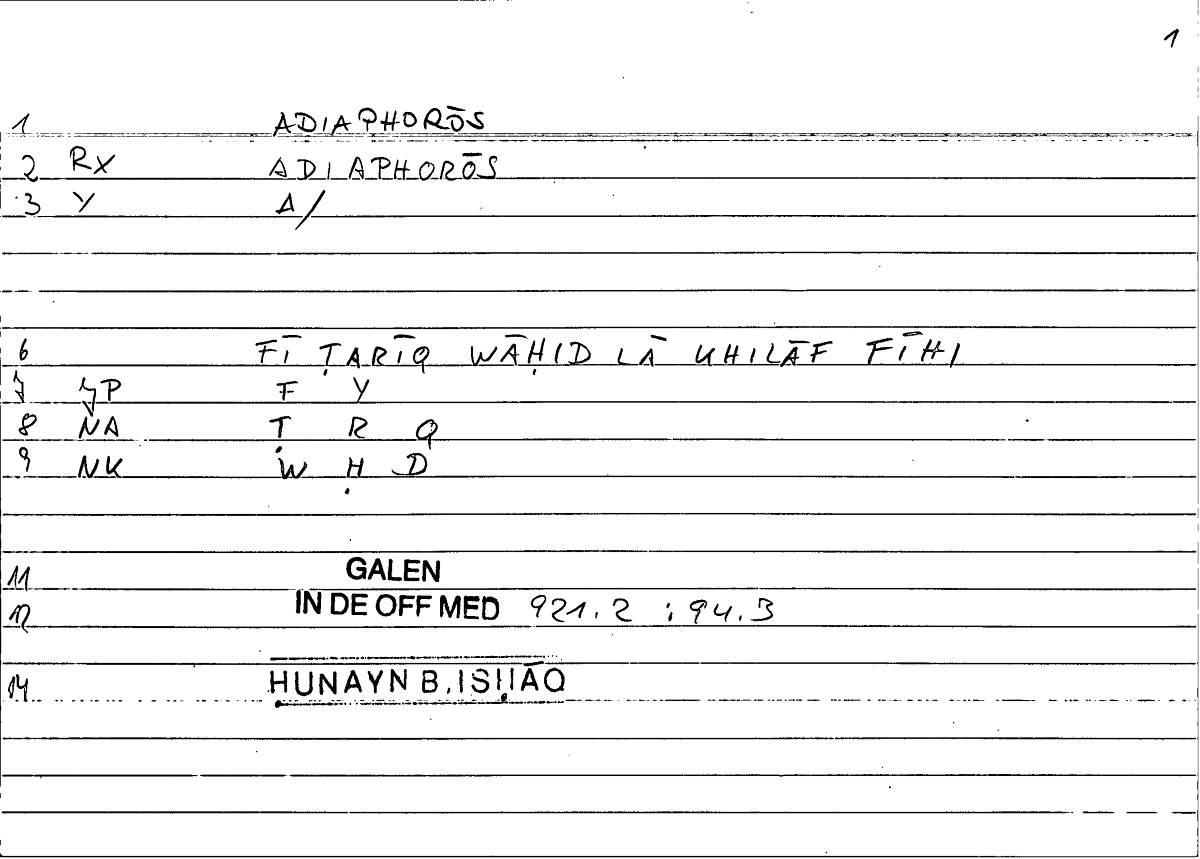 1
1 ADIAPHORŌS
2 RX ADIAPHORŌS
3 Y A/
6 FĪ ṬARĪQ WĀḤID LĀ KHILĀF FĪHI
7 JP F Y
8 NA Ṭ R Q
9 NK W Ḥ D
11 GALEN
12 IN DE OFF MED 921.2 ; 94.3
14 ḤUNAYN B. ISḤĀQ